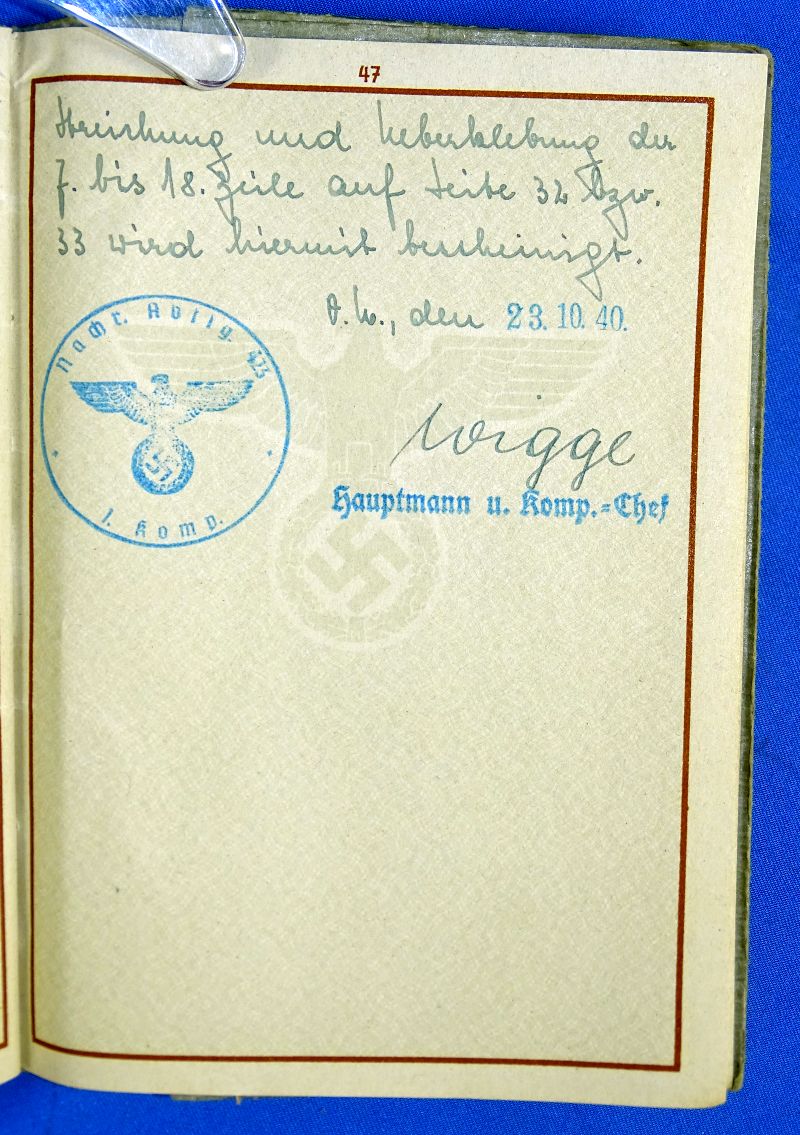 47
Streichung und Ueberklebung der
7. bis 18. Zeile auf Seite 32 bzw.
33 wird hiermit bescheinigt.
O.U., den 23.10.40.
Nachr. Abtlg.
1. Komp.
Wigge
Hauptmann u. Komp.=Chef